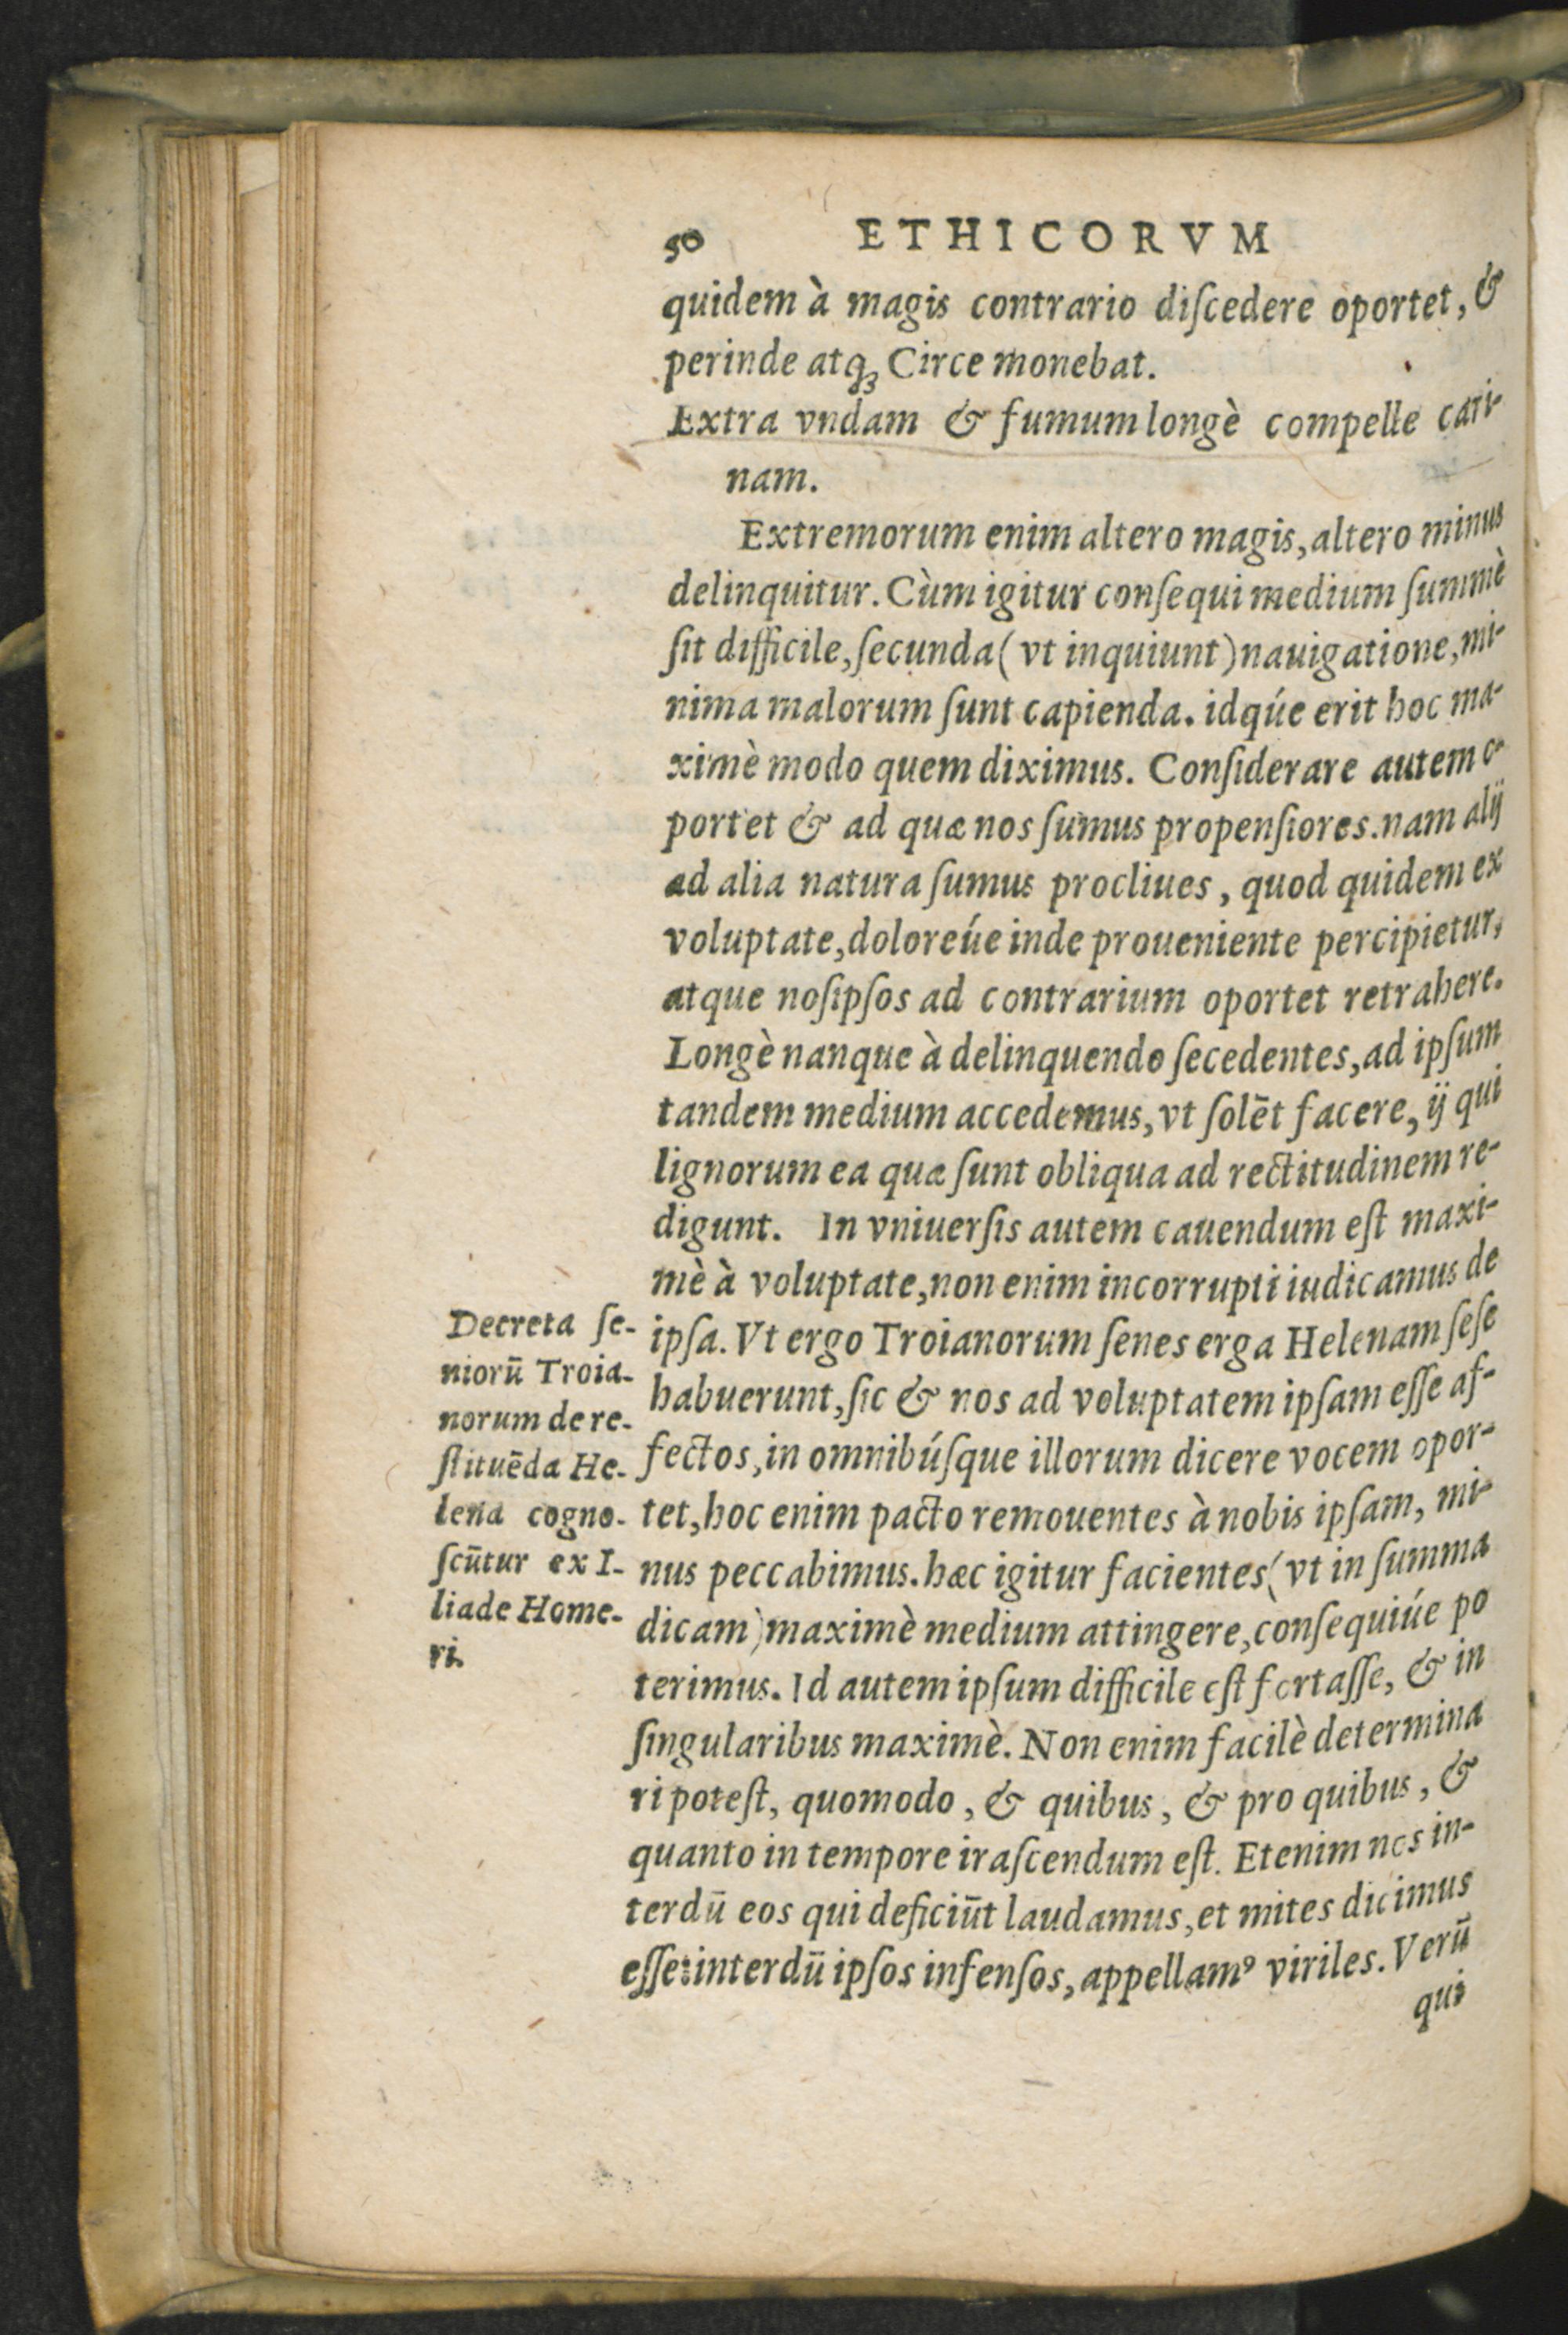 50 ETHICORVM
quidem à magis contrario diſcedere oportet, &
perinde atq; Circe monebat.
Extra vndam & fumum longè compelle cari-
nam.
Extremorum enim altero magis, altero minus
delinquitur. Cùm igitur conſequi medium ſummè
ſit difficile, ſecunda (vt inquiunt) nauigatione, mi-
nima malorum ſunt capienda. idqúe erit hoc ma-
ximè modo quem diximus. Conſiderare autem o-
portet & ad quæ nos ſumus propenſiores. nam alij
ad alia natura ſumus procliues, quod quidem ex
voluptate, doloreúe inde proueniente percipietur,
atque noſipſos ad contrarium oportet retrahere.
Longè nanque à delinquendo ſecedentes, ad ipſum
tandem medium accedemus, vt ſolēt facere, ij qui
lignorum ea quæ ſunt obliqua ad rectitudinem re-
digunt. In vniuerſis autem cauendum eſt maxi-
mè à voluptate, non enim incorrupti iudicamus de
ipſa. Vt ergo Troianorum ſenes erga Helenam ſeſe
habuerunt, ſic & nos ad voluptatem ipſam eſſe af-
fectos, in omnibúſque illorum dicere vocem opor-
tet, hoc enim pacto remouentes à nobis ipſam, mi-
nus peccabimus. hæc igitur facientes (vt in ſumma
dicam) maximè medium attingere, conſequiúe po
terimus. Id autem ipſum difficile eſt fortaſſe, & in
ſingularibus maximè. Non enim facilè determina
ri poteſt, quomodo, & quibus, & pro quibus, &
quanto in tempore iraſcendum eſt. Etenim nos in-
terdū eos qui deficiūt laudamus, et mites dicimus
eſſe: interdū ipſos infenſos, appellamꝰ viriles. Verū
qui
Decreta ſe-
niorū Troia-
norum de re-
ſtituēda He-
lena cogno-
ſcūtur ex I-
liade Home-
ri.